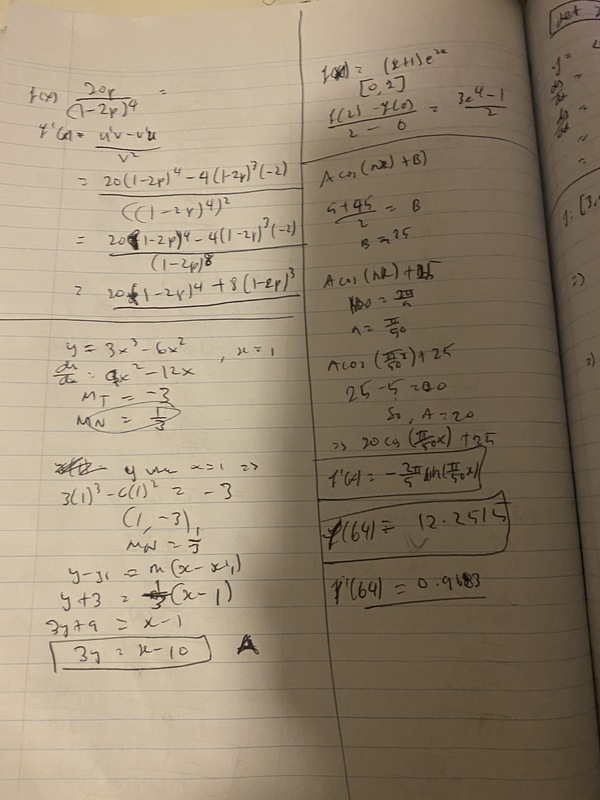 f(x) 20p / (1-2p)^4 =
f'(x) = u'v - v'u / v^2
= 20(1-2p)^4 - 4(1-2p)^3(-2) / ((1-2p)^4)^2
= 20(1-2p)^4 - 4(1-2p)^3(-2) / (1-2p)^8
= 20(1-2p)^4 + 8(1-2p)^3
y = 3x^3 - 6x^2 , x = 1
dy/dx = 9x^2 - 12x
M_T = -3
M_N = 1/3
y when x=1 =>
3(1)^3 - 6(1)^2 = -3
(1, -3),
M_N = 1/3
y - y_1 = m(x - x_1)
y+3 = 1/3 (x-1)
3y+9 = x-1
3y = x-10 A
f(x) = (x+1)e^2x
[0, 2]
f(2) - f(0) / 2 - 0 = 3e^4 - 1 / 2
A cos(nx) + B)
5+45 / 2 = B
B = 25
A cos(nx) + 25
= 2π/n
n = π/50
A cos(π/50 x) + 25
25 - 5 = 20
So, A = 20
=> 20 cos(π/50 x) + 25
f'(x) = - 2π/5 sin(π/50 x)
f(64) = 12.2515
f'(64) = 0.9683
y =
dy/dx =
=
=>